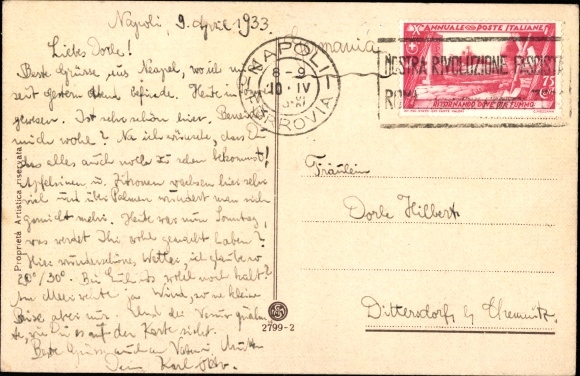 Napoli, 9. April 1933
Liebes Dorle!
Beste Grüsse aus Neapel, wo ich mich
seit gestern Abend befinde. Heute in
gewesen. Ist sehr schön hier. Beneidest
mich wohl? Na ich wünsche, dass Du
das alles auch noch zu sehen bekommst!
Apfelsinen u. Zitronen wachsen hier sehr
viel und über Palmen wundert man sich
garnicht mehr. Heute war nun Sonntag,
was werdet Ihr wohl gemacht haben?
Hier wunderschönes Wetter, ich glaube
20°/30°. Bei Euch ist wohl noch kalt?
Am Meer weite gar Wind, so ne kleine
Brise aber nur. Und der Vesuv qualmte,
wie Du es auf der Karte siehst.
Beste Grüsse auch an Vater u. Mutter
Dein Karl-Otto.
Proprietà Artistica riservata
2799-2
Germania
NAPOLI
8-9
10·IV
FERROVIA
X° ANNUALE POSTE ITALIANE
75
RITORNANDO DOVE GIÀ FUMMO
MOSTRA RIVOLUZIONE FASCISTA
ROMA
Fräulein
Dorle Hilbert
Dittersdorf bei Chemnitz